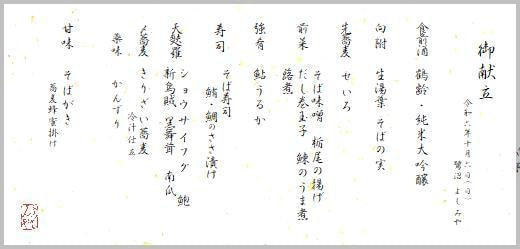 御献立
令和六年十月六日(日)
鷺沼 よしみや
食前酒 鶴齢・純米大吟醸
向附 生湯葉 そばの実
先蕎麦 せいろ
前菜 そば味噌 栃尾の揚げ
だし巻玉子 鰊のうま煮
蕗煮
強肴 鮎うるか
寿司 そば寿司
鯖・鯛のささ漬け
天麩羅 ショウサイフグ 鮑
新烏賊 黒舞茸 南瓜
〆蕎麦 きりざい蕎麦
冷汁仕立
薬味 かんずり
甘味 そばがき
蕎麦蜂蜜掛け